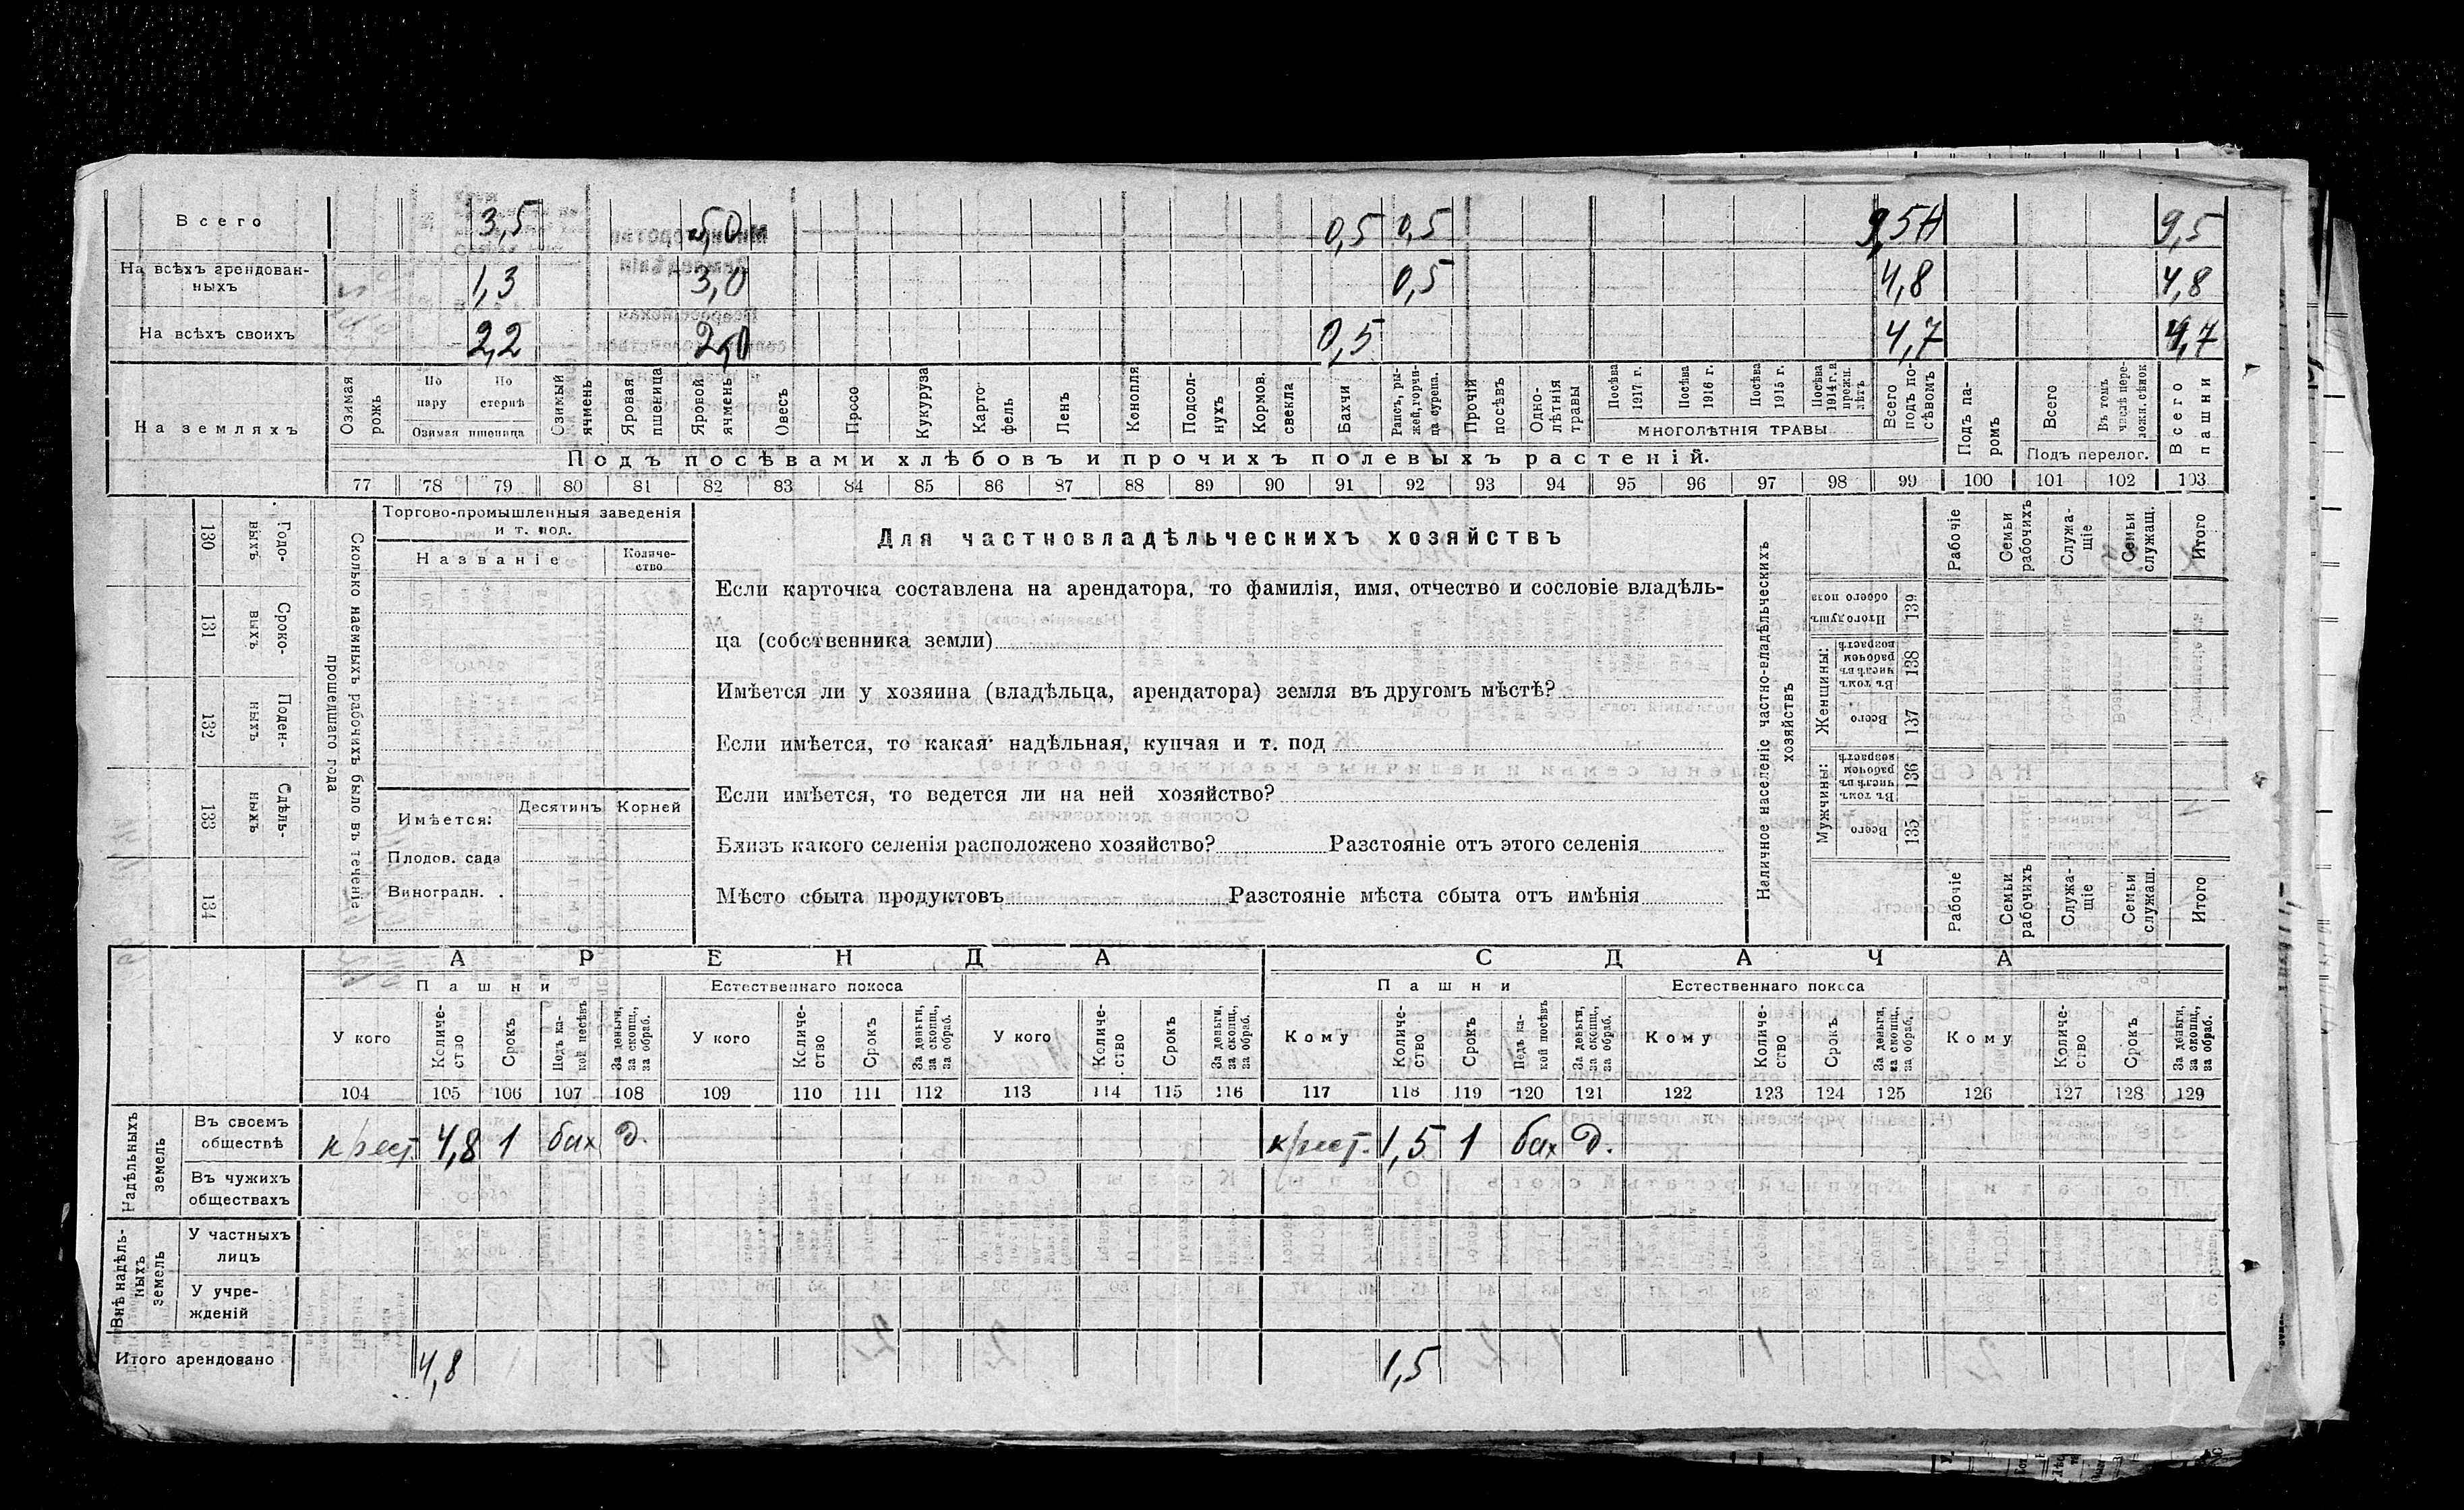 Всего 3,5 5,0 0,5 0,5 9,5 9,5
На всѣхъ арендованныхъ 1,3 3,0 0,5 4,8 4,8
На всѣхъ своихъ 2,2 2,0 0,5 4,7 4,7
На земляхъ
Озимая рожь
По пару
По стернѣ
Озимая пшеница
Озимый ячмень
Яровая пшеница
Яровой ячмень
Овесъ
Просо
Кукуруза
Картофель
Ленъ
Конопля
Подсолнухъ
Кормов. свекла
Бахчи
Рапсъ, рыжей, горчица сурепа.
Прочій посѣвъ
Однолѣтнія травы
Посѣва 1917 г.
Посѣва 1916 г.
Посѣва 1915 г.
Посѣва 1914 г. и прежн. лѣтъ
МНОГОЛѢТНІЯ ТРАВЫ
Всего подъ посѣвомъ
Подъ паромъ
Всего
Въ томъ числѣ переложн. сѣнок
Подъ перелог.
Всего пашни
Подъ посѣвами хлѣбовъ и прочихъ полевыхъ растеній.
77 78 79 80 81 82 83 84 85 86 87 88 89 90 91 92 93 94 95 96 97 98 99 100 101 102 103
130 Годовыхъ
131 Сроковыхъ
132 Поденныхъ
133 Сдѣльныхъ
134
Сколько наемныхъ рабочихъ было въ теченіе прошедшаго года
Торгово-промышленныя заведенія
и т. под.
Названіе
Количество
Имѣется: Десятинъ Корней
Плодов. сада
Виноградн.
Для частновладѣльческихъ хозяйствъ
Если карточка составлена на арендатора, то фамилія, имя, отчество и сословіе владѣль-
ца (собственника земли)
Имѣется ли у хозяина (владѣльца, арендатора) земля въ другомъ мѣстѣ?
Если имѣется, то какая: надѣльная, купчая и т. под
Если имѣется, то ведется ли на ней хозяйство?
Близъ какого селенія расположено хозяйство? Разстояніе отъ этого селенія
Мѣсто сбыта продуктовъ Разстояніе мѣста сбыта отъ имѣнія
Наличное населеніе частно-владѣльческихъ хозяйствъ
Рабочіе
Семьи рабочихъ
Служащіе
Семьи служащ.
Итого
Итого душъ обоего пола 139
Женщины:
Въ томъ числѣ въ рабочемъ возрастѣ 138
Всего 137
Мужчины:
Въ томъ числѣ въ рабочемъ возрастѣ 136
Всего 135
Рабочіе
Семьи рабочихъ
Служащіе
Семьи служащ.
Итого
АРЕНДА СДАЧА
Пашни Естественнаго покоса Пашни Естественнаго покоса
У кого
Количество
Срокъ
Подъ какой посѣвъ
За деньги, за скопщ., за обраб.
У кого
Количество
Срокъ
За деньги, за скопщ., за обраб.
У кого
Количество
Срокъ
За деньги, за скопщ., за обраб.
Кому
Количество
Срокъ
Подъ какой посѣвъ
За деньги, за скопщ., за обраб.
Кому
Количество
Срокъ
За деньги, за скопщ., за обраб.
Кому
Количество
Срокъ
За деньги, за скопщ., за обраб.
104 105 106 107 108 109 110 111 112 113 114 115 116 117 118 119 120 121 122 123 124 125 126 127 128 129
Надѣльныхъ земель
Въ своемъ обществѣ крест 4,8 1 бах д. крест. 1,5 1 бах д.
Въ чужихъ обществахъ
Внѣ надѣльныхъ земель
У частныхъ лицъ
У учрежденій
Итого арендовано 4,8 1,5